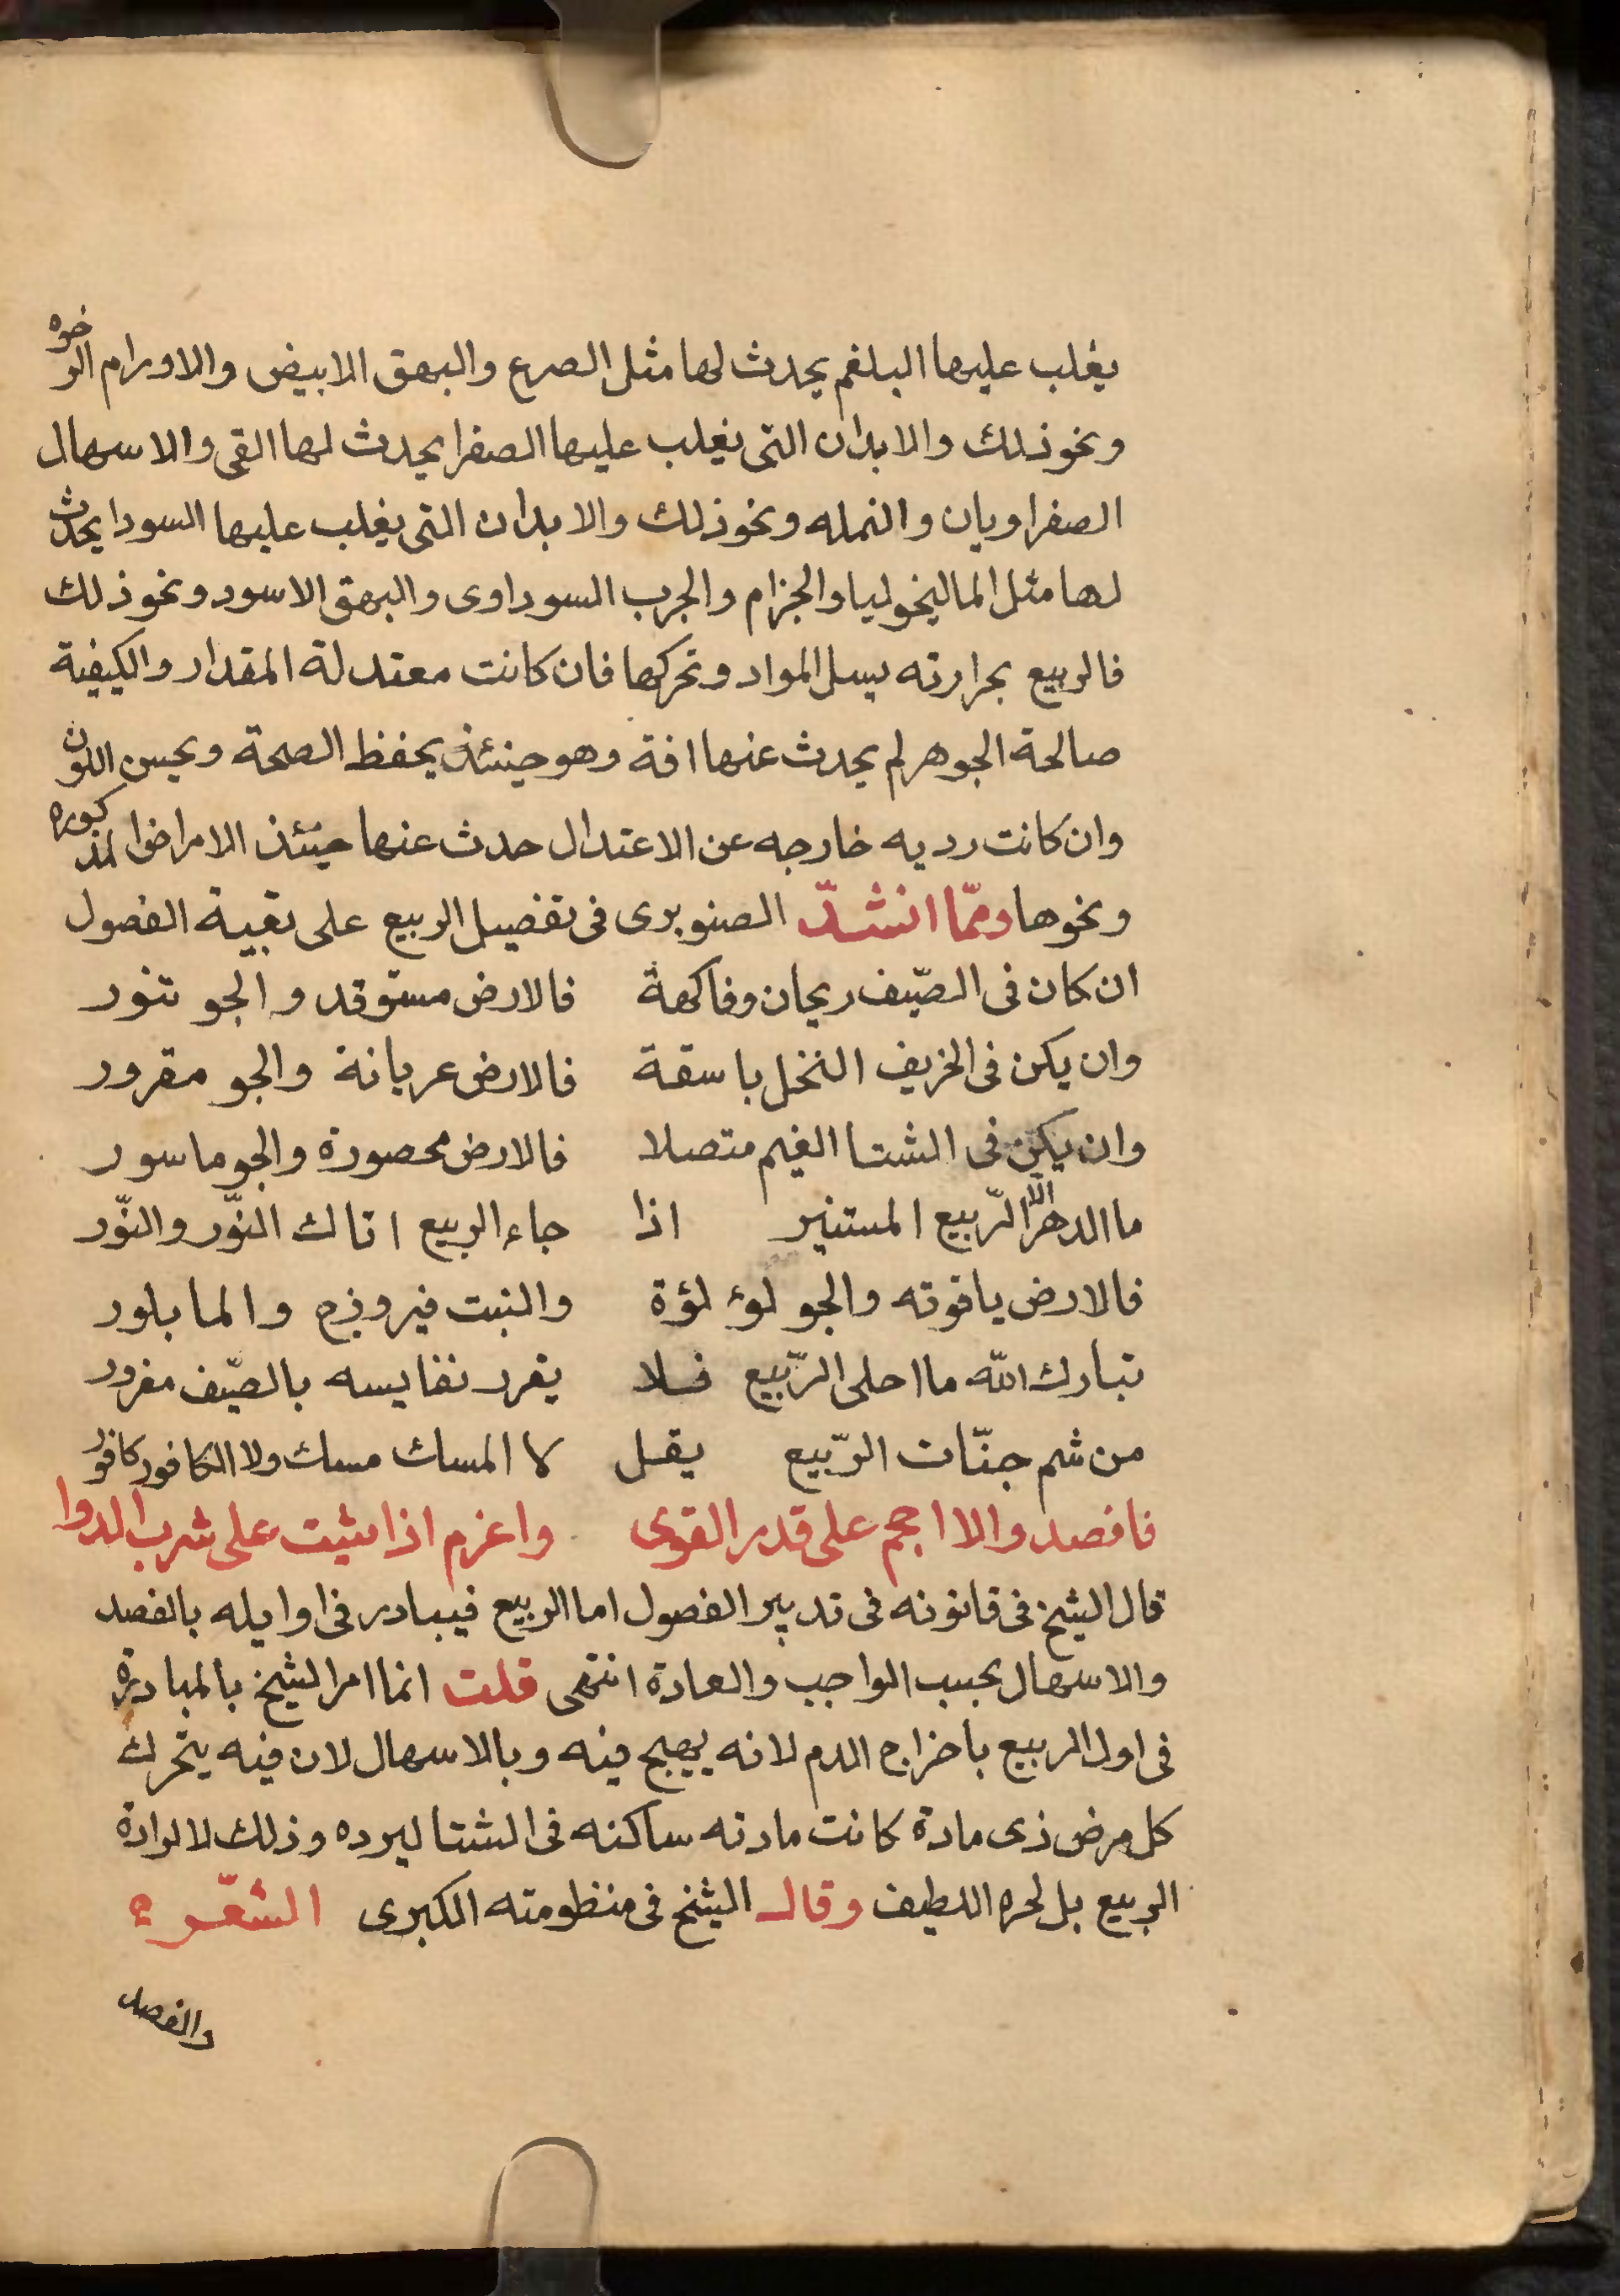 يغلب عليها البلغم يحدث لها مثل الصرع والبهق الابيض والاورام الرخوه
ونحو ذلك والابدان التى يغلب عليها الصفرا يحدث لها القى والاسهال
الصفراويان والنمله ونحو ذلك والابدان التى يغلب عليها السودا يحدث
لها مثل الماليخوليا والجزام والجرب السوداوى والبهق الاسود ونحو ذلك
فالربيع بحرارته يسل المواد وتحركها فان كانت معتدلة المقدار والكيفية
صالحة الجوهر لم يحدث عنها افة وهو حينئذ يحفظ الصحة ويحسن اللون
وان كانت رديه خارجه عن الاعتدال حدث عنها حينئذ الامراض المذكوره
ونحوها وممّا انشدّ الصنوبرى فى تفضيل الربيع على بقية الفصول
ان كان فى الصّيف ريحان وفاكهة فالارض مستوقد والجو تنور
وان يكن فى الخريف النخل باسقة فالارض عريانة والجو مقرور
وان يكن فى الشتا الغيم متصلا فالارض محصورة والجو ماسور
ما الدهر الّا الرّبيع المستنير اذا جاء الربيع اتاك النّور والنّور
فالارض ياقوته والجو لوء لؤة والنبت فيروزج والما بلور
تبارك اللّه ما احلى الرّبيع فلا يغرر نفايسه بالصّيف مغرور
من شم جنّات الرّبيع يقل لا المسك مسك ولا الكافور كافور
فافصد والا احجم على قدر القوى واعزم اذا شيت على شرب الدوا
قال الشيخ فى قانونه فى تدبير الفصول اما الربيع فيبادر فى اوايله بالفصد
والاسهال بحسب الواجب والعادة انتهى قلت انما امر الشيخ بالمبادرة
فى اول الربيع باخراج الدم لانه يهيج فيه وبالاسهال لان فيه يتحرك
كل مرض ذى مادة كانت مادته ساكنه فى الشتا لبرده وذلك لا لرداة
الربيع بل لحره اللطيف وقال الشيخ فى منظومته الكبرى الشّعر
والفصد